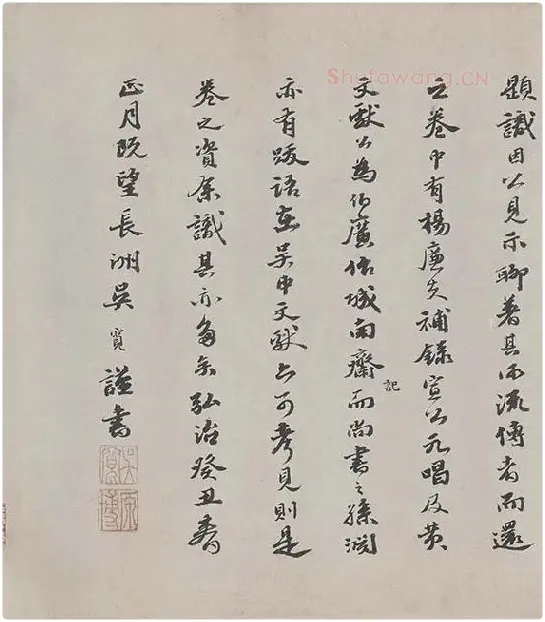 Shufawang.CN
題識因以見示聊著其所流傳者而還
之卷中有楊廉夫補錄宣公元唱及黄
文獻公為伯廣作城南齋記而尚書之孫淵
亦有跋語在吳中文獻可考見則是
卷之資余識其亦多矣弘治癸丑春
正月既望長洲吳寬謹書
吳寬
原博